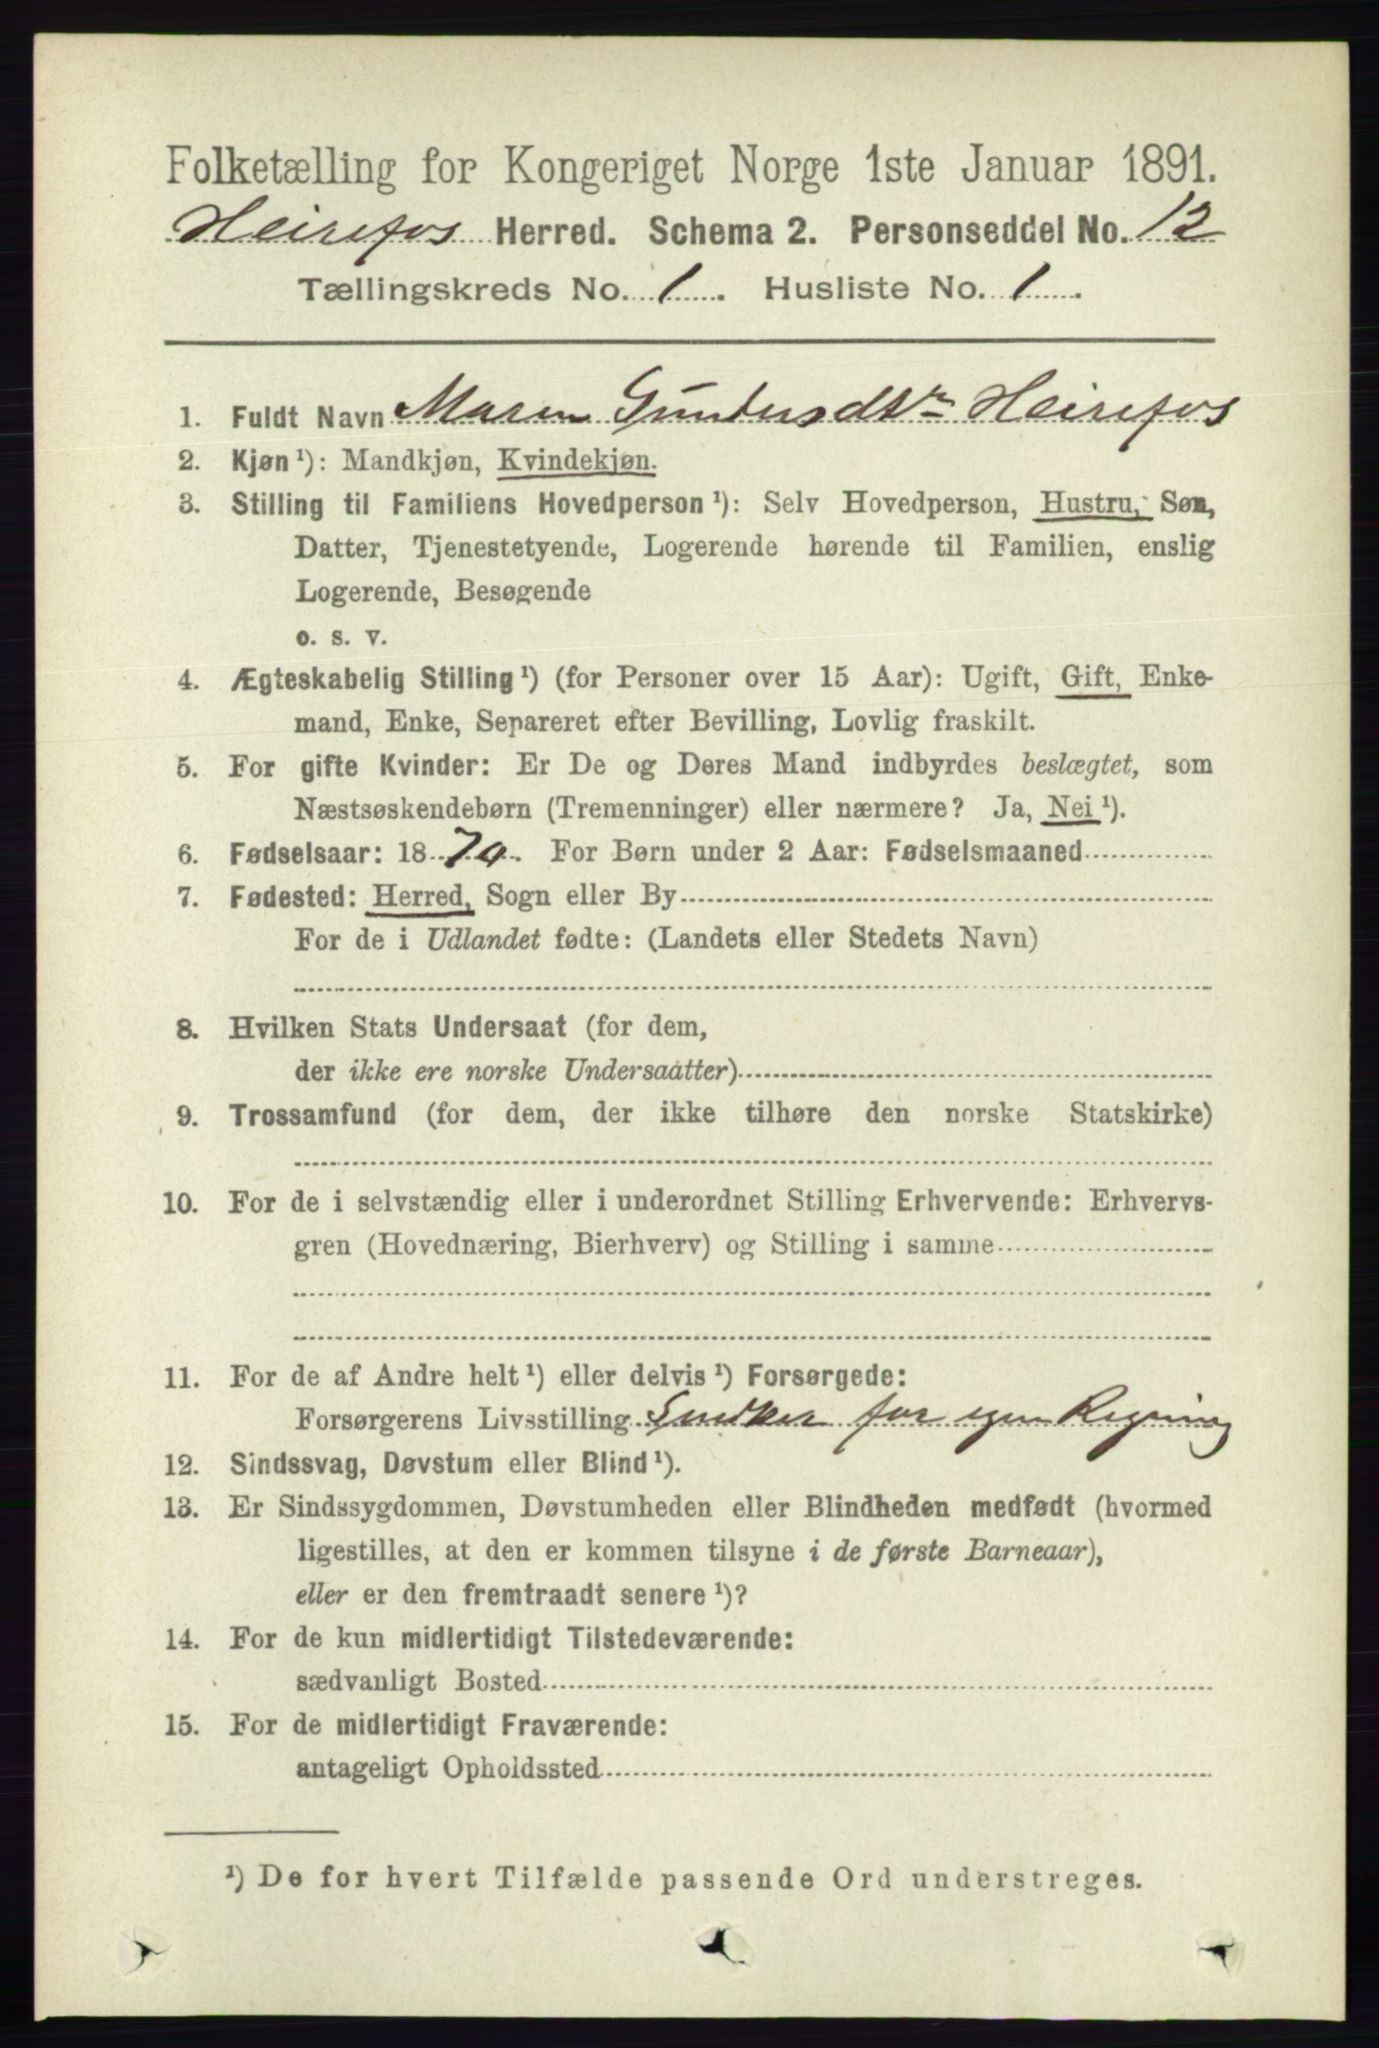 Folketælling for Kongeriget Norge 1ste Januar 1891.
Heirefos Herred. Schema 2. Personseddel No. 12
Tællingskreds No. 1. Husliste No. 1.
1. Fuldt Navn Maren Gundersdtr Heirefos
2. Kjøn ¹): Mandkjøn, Kvindekjøn.
3. Stilling til Familiens Hovedperson ¹): Selv Hovedperson, Hustru, Søn,
Datter, Tjenestetyende, Logerende hørende til Familien, enslig
Logerende, Besøgende
o. s. v.
4. Ægteskabelig Stilling ¹) (for Personer over 15 Aar): Ugift, Gift, Enke-
mand, Enke, Separeret efter Bevilling, Lovlig fraskilt.
5. For gifte Kvinder: Er De og Deres Mand indbyrdes beslægtet, som
Næstsøskendebørn (Tremenninger) eller nærmere? Ja, Nei ¹).
6. Fødselsaar: 1870. For Børn under 2 Aar: Fødselsmaaned
7. Fødested: Herred, Sogn eller By
For de i Udlandet fødte: (Landets eller Stedets Navn)
8. Hvilken Stats Undersaat (for dem,
der ikke ere norske Undersaatter)
9. Trossamfund (for dem, der ikke tilhøre den norske Statskirke)
10. For de i selvstændig eller i underordnet Stilling Erhvervende: Erhvervs-
gren (Hovednæring, Bierhverv) og Stilling i samme
11. For de af Andre helt ¹) eller delvis ¹) Forsørgede:
Forsørgerens Livsstilling Snedker for egen Regning
12. Sindssvag, Døvstum eller Blind ¹).
13. Er Sindssygdommen, Døvstumheden eller Blindheden medfødt (hvormed
ligestilles, at den er kommen tilsyne i de første Barneaar),
eller er den fremtraadt senere ¹)?
14. For de kun midlertidigt Tilstedeværende:
sædvanligt Bosted
15. For de midlertidigt Fraværende:
antageligt Opholdssted
¹) De for hvert Tilfælde passende Ord understreges.